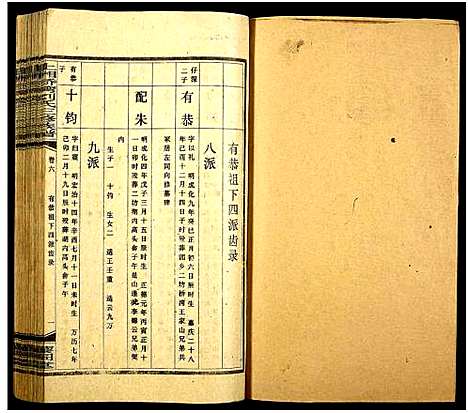 有恭祖下四派齿录
八派
仔深
二子
有恭
字以礼 明成化九年癸巳正月初六日辰时生 嘉庆二十八
年己酉十二月十四日子时殁葬湘乡二坊桥湾王家山兄弟共
家居左同向修墓碑
配朱
明成化四年戊子三月十五日辰时生 正德元年丙寅正月十
一日卯时殁葬二坊
内
生子一 十钧 生女二 适工壬重 适云九万
九派
有恭
子
十钧
字曰震 明宏治十四年辛酉七月一日未时生 万历七年
己卯二月十九日辰时殁葬湖内高头仑子午
卷六
有恭祖下四派齿录
一